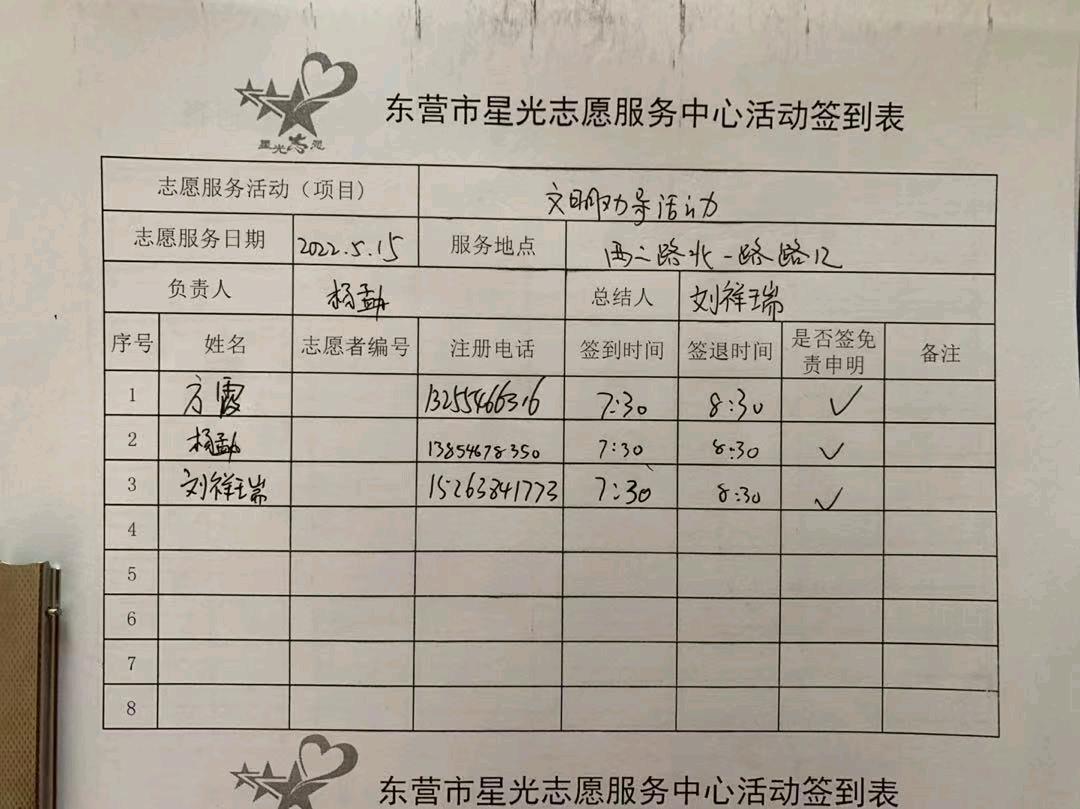 星光志愿
东营市星光志愿服务中心活动签到表
志愿服务活动（项目） 文明劝导活动
志愿服务日期 2022.5.15 服务地点 西二路北一路路口
负责人 杨勐 总结人 刘祥瑞
序号 姓名 志愿者编号 注册电话 签到时间 签退时间 是否签免责申明 备注
1 方霞 13255466316 7:30 8:30 ✓
2 杨勐 13854678350 7:30 8:30 ✓
3 刘祥瑞 15263841773 7:30 8:30 ✓
4
5
6
7
8
东营市星光志愿服务中心活动签到表